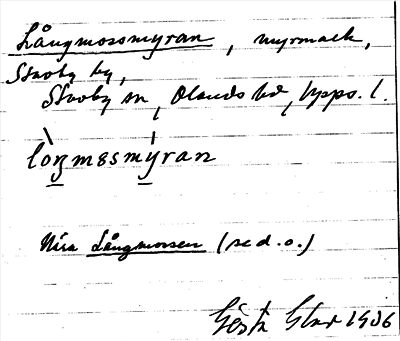 Långmossmyran, myrmark,
Skoby by,
Skoby sn, Olands hd, Upps. l.
lòŋmɜsmýran
Nära Långmossen (se d.o.)
Gösta Slar 1936